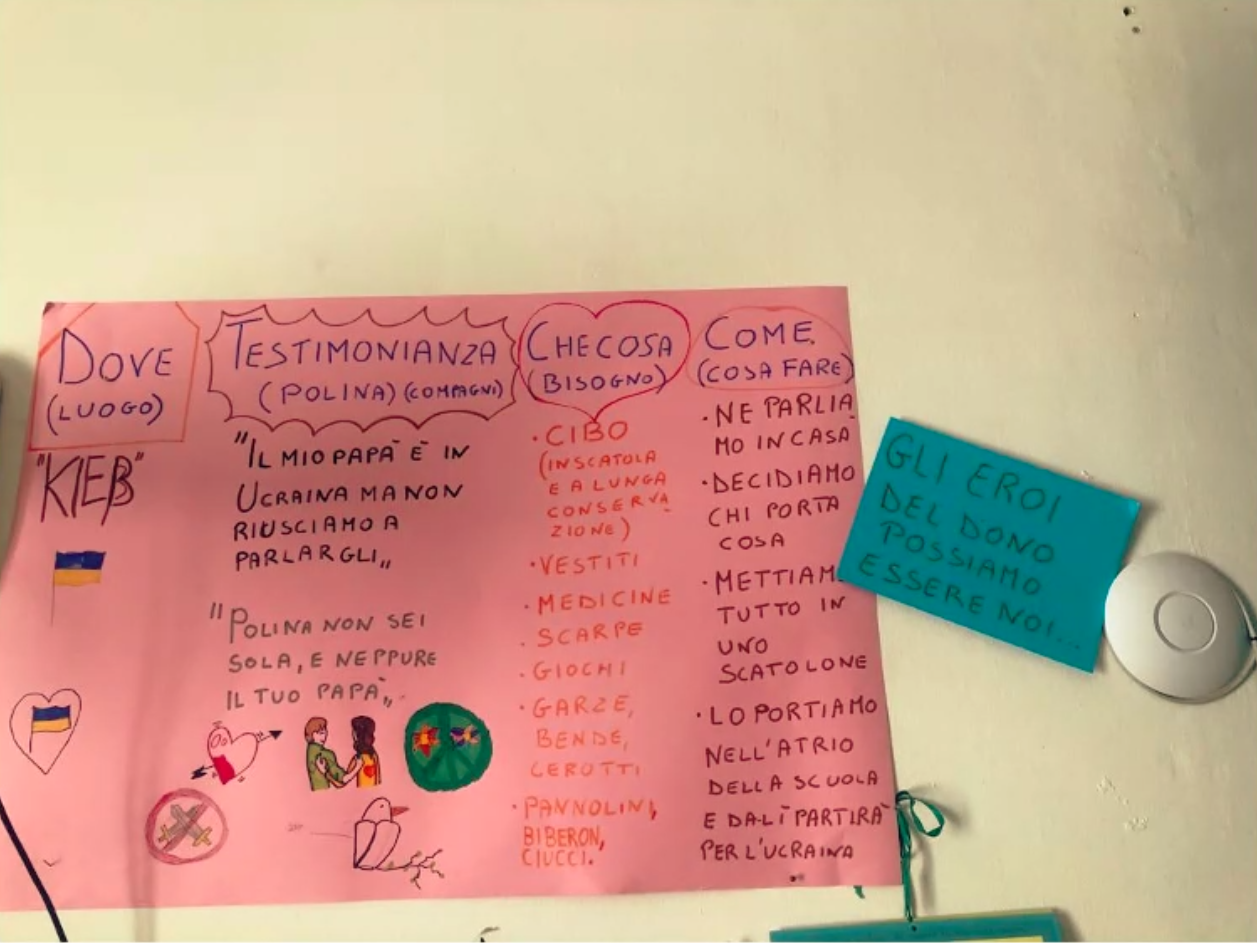 DOVE
(LUOGO)
"KIEB"
TESTIMONIANZA
(POLINA) (COMPAGNI)
"IL MIO PAPÀ È IN
UCRAINA MA NON
RIUSCIAMO A
PARLARGLI„
"POLINA NON SEI
SOLA, E NEPPURE
IL TUO PAPÀ„
CHE COSA
(BISOGNO)
·CIBO
(IN SCATOLA
E A LUNGA
CONSERVA
ZIONE)
·VESTITI
·MEDICINE
·SCARPE
·GIOCHI
·GARZE,
BENDE,
CEROTTI
·PANNOLINI,
BIBERON,
CIUCCI.
COME
(COSA FARE)
·NE PARLIA
MO IN CASA
·DECIDIAMO
CHI PORTA
COSA
·METTIAM
TUTTO IN
UNO
SCATOLONE
·LO PORTIAMO
NELL'ATRIO
DELLA SCUOLA
E DA LÌ PARTIRÀ
PER L'UCRAINA
GLI EROI
DEL DONO
POSSIAMO
ESSERE NOI...